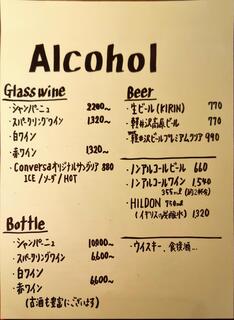 Alcohol
Glass wine
・シャンパーニュ 2200~
・スパークリングワイン 1320~
・白ワイン
・赤ワイン 1320~
・Conversaオリジナルサングリア 880
ICE / ソーダ / HOT
Bottle
・シャンパーニュ 10900~
・スパークリングワイン 6600~
・白ワイン
・赤ワイン 6600~
(古酒も豊富にございます)
Beer
・生ビール (KIRIN) 770
・軽井沢高原ビール 770
・軽井沢ビールプレミアムクリア 990
・ノンアルコールビール 660
・ノンアルコールワイン 1,540
355ml
・HILDON 750ml
(イギリスの炭酸水) 1320
・ウイスキー、食後酒...